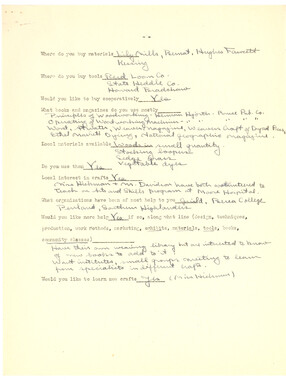 Where do you buy materials Lily Mills, Hughes Fawcett
Where do you buy tools Reed Loom Co.
State Reddin Co
Howard Bradshaw
Would you like to buy cooperatively Yes
What books and magazines do you use mostly
Principles of Woodworking Hjorth - Bruce Pub. Co.
Operating of Woodworking Machines
Ethel Mairet Dyeing, National Geographic magazine.
Local materials available Woods in small quantity
Sedge Grass
Vegetable dyes
Do you use them Yes
Local interest in crafts Yes
Miss Hickman + Mrs. Davidson have both volunteered to
teach in Arts and Skills Program at Moore Hospital.
What organizations have been of most help to you Guild, Berea College
Penland, Southern Highlanders
Would you like more help Yes if so, along what line (design, techniques,
production, work methods, marketing, exhibits, materials, tools, books,
community classes)
Have their own weaving library but are interested to know
of new books to add to it.
Want institutes, small groups consulting to learn
from specialists in different crafts.
Would you like to learn new crafts Yes (Miss Hickman)